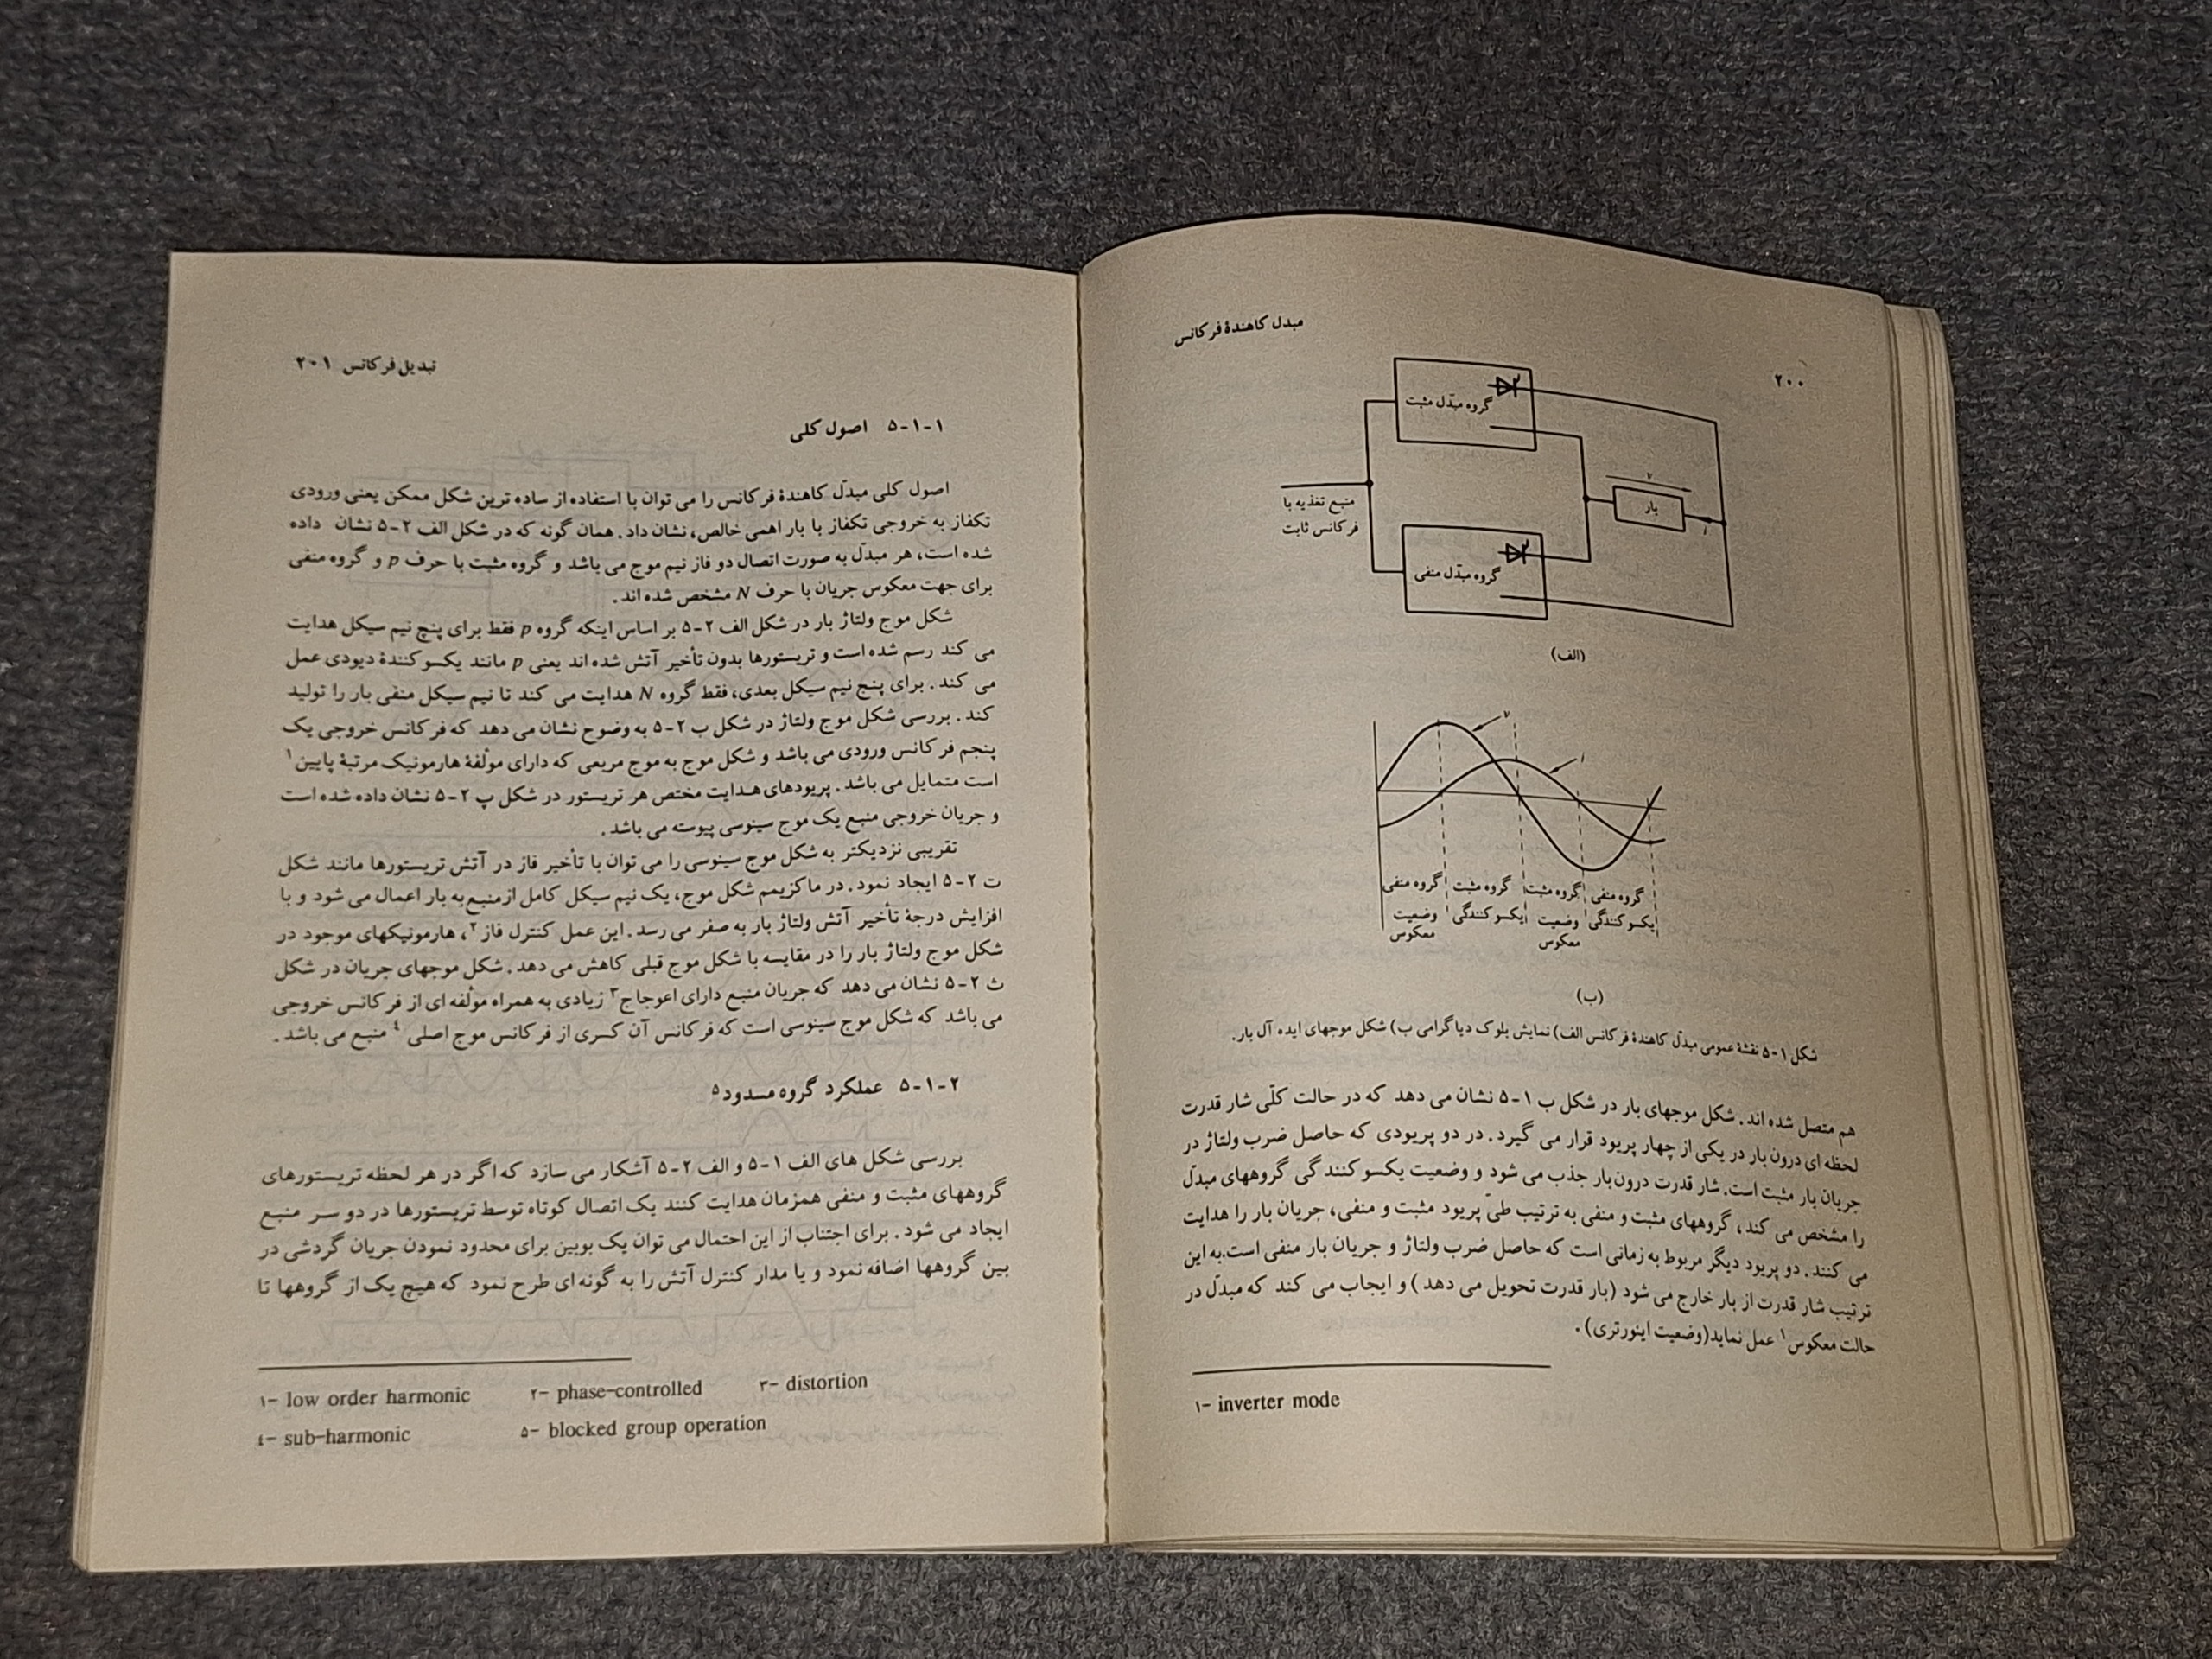 مبدل کاهندهٔ فرکانس
۲۰۰
گروه مبدّل مثبت
v
بار
i
منبع تغذیه با
فرکانس ثابت
گروه مبدّل منفی
(الف)
v
i
گروه منفی گروه مثبت گروه مثبت گروه منفی
وضعیت یکسوکنندگی وضعیت یکسوکنندگی
معکوس معکوس
(ب)
شکل ۱-۵ نقشهٔ عمومی مبدّل کاهندهٔ فرکانس الف) نمایش بلوک دیاگرامی ب) شکل موجهای ایده آل بار.
هم متصل شده اند. شکل موجهای بار در شکل ب ۱-۵ نشان می دهد که در حالت کلّی شار قدرت
لحظه ای درون بار در یکی از چهار پریود قرار می گیرد. در دو پریودی که حاصل ضرب ولتاژ در
جریان بار مثبت است. شار قدرت درون بار جذب می شود و وضعیت یکسوکنندگی گروههای مبدّل
را مشخص می کند، گروههای مثبت و منفی به ترتیب طیّ پریود مثبت و منفی، جریان بار را هدایت
می کنند. دو پریود دیگر مربوط به زمانی است که حاصل ضرب ولتاژ و جریان بار منفی است. به این
ترتیب شار قدرت از بار خارج می شود (بار قدرت تحویل می دهد) و ایجاب می کند که مبدّل در
حالت معکوس۱ عمل نماید (وضعیت اینورتری).
۱- inverter mode
تبدیل فرکانس ۲۰۱
۵-۱-۱ اصول کلی
اصول کلی مبدّل کاهندهٔ فرکانس را می توان با استفاده از ساده ترین شکل ممکن یعنی ورودی
تکفاز به خروجی تکفاز با بار اهمی خالص، نشان داد. همان گونه که در شکل الف ۲-۵ نشان داده
شده است، هر مبدّل به صورت اتصال دو فاز نیم موج می باشد و گروه مثبت با حرف p و گروه منفی
برای جهت معکوس جریان با حرف N مشخص شده اند.
شکل موج ولتاژ بار در شکل الف ۲-۵ بر اساس اینکه گروه p فقط برای پنج نیم سیکل هدایت
می کند رسم شده است و تریستورها بدون تأخیر آتش شده اند یعنی p مانند یکسوکنندهٔ دیودی عمل
می کند. برای پنج نیم سیکل بعدی، فقط گروه N هدایت می کند تا نیم سیکل منفی بار را تولید
کند. بررسی شکل موج ولتاژ در شکل ب ۲-۵ به وضوح نشان می دهد که فرکانس خروجی یک
پنجم فرکانس ورودی می باشد و شکل موج به موج مربعی که دارای مولفهٔ هارمونیک مرتبهٔ پایین۱
است متمایل می باشد. پریودهای هدایت مختص هر تریستور در شکل پ ۲-۵ نشان داده شده است
و جریان خروجی منبع یک موج سینوسی پیوسته می باشد.
تقریبی نزدیکتر به شکل موج سینوسی را می توان با تأخیر فاز در آتش تریستورها مانند شکل
ت ۲-۵ ایجاد نمود. در ماکزیمم شکل موج، یک نیم سیکل کامل از منبع به بار اعمال می شود و با
افزایش درجهٔ تأخیر آتش ولتاژ بار به صفر می رسد. این عمل کنترل فاز۲، هارمونیکهای موجود در
شکل موج ولتاژ بار را در مقایسه با شکل موج قبلی کاهش می دهد. شکل موجهای جریان در شکل
ث ۲-۵ نشان می دهد که جریان منبع دارای اعوجاج۳ زیادی به همراه مولفه ای از فرکانس خروجی
می باشد که شکل موج سینوسی است که فرکانس آن کسری از فرکانس موج اصلی۴ منبع می باشد.
۵-۱-۲ عملکرد گروه مسدود۵
بررسی شکل های الف ۱-۵ و الف ۲-۵ آشکار می سازد که اگر در هر لحظه تریستورهای
گروههای مثبت و منفی همزمان هدایت کنند یک اتصال کوتاه توسط تریستورها در دو سر منبع
ایجاد می شود. برای اجتناب از این احتمال می توان یک بوبین برای محدود نمودن جریان گردشی در
بین گروهها اضافه نمود و یا مدار کنترل آتش را به گونه ای طرح نمود که هیچ یک از گروهها تا
۱- low order harmonic ۲- phase-controlled ۳- distortion
۴- sub-harmonic ۵- blocked group operation